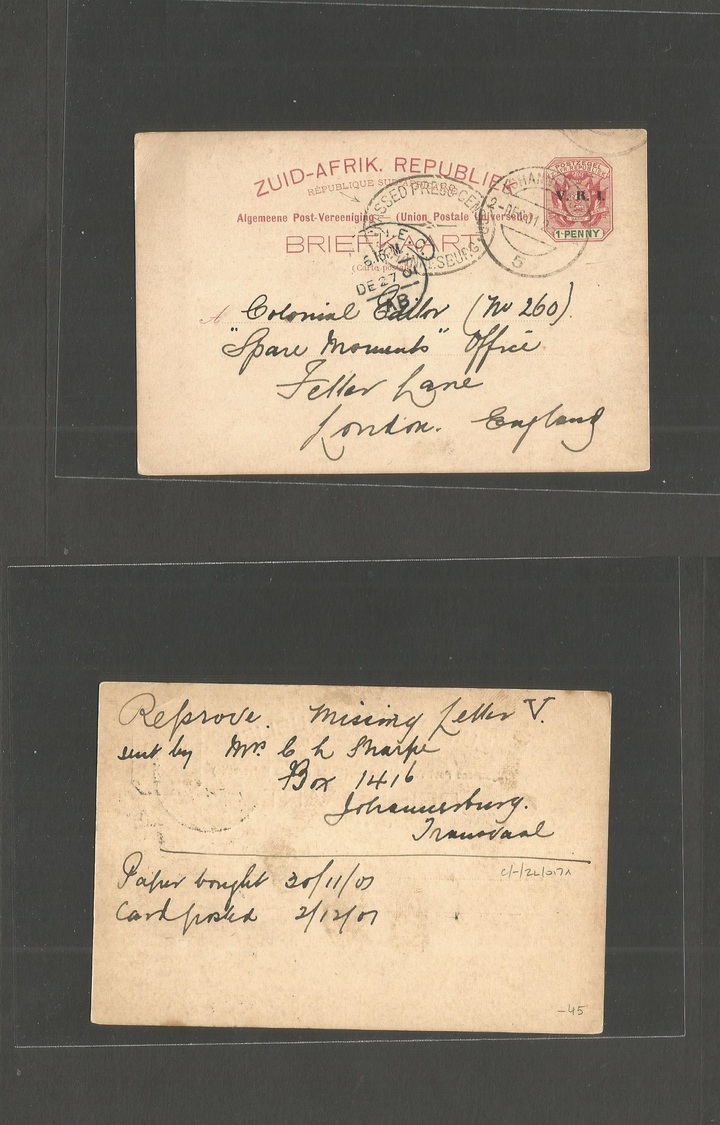 ZUID-AFRIK. REPUBLIEK
RÉPUBLIQUE SUD
POSTZEGEL
V. R. I.
1 PENNY
Algemeene Post-Vereeniging — (Union Postale Universelle)
BRIEFKAART
(Carte postale)
PASSED PRESS CENSOR
JOHANNESBURG
JOHANN
2-DEC 01
5
N.E.O.
6.15PM
DE 27 01
AB
A Colonial Editor (No 260)
"Spare Moments" Office
Fetter Lane
London. England
Reprove. Missing Letter V.
sent by Mrs C L Sharpe
Box 1416
Johannesburg.
Transvaal
C/-/22/017A
Paper bought 30/11/01
Card posted 2/12/01
-45